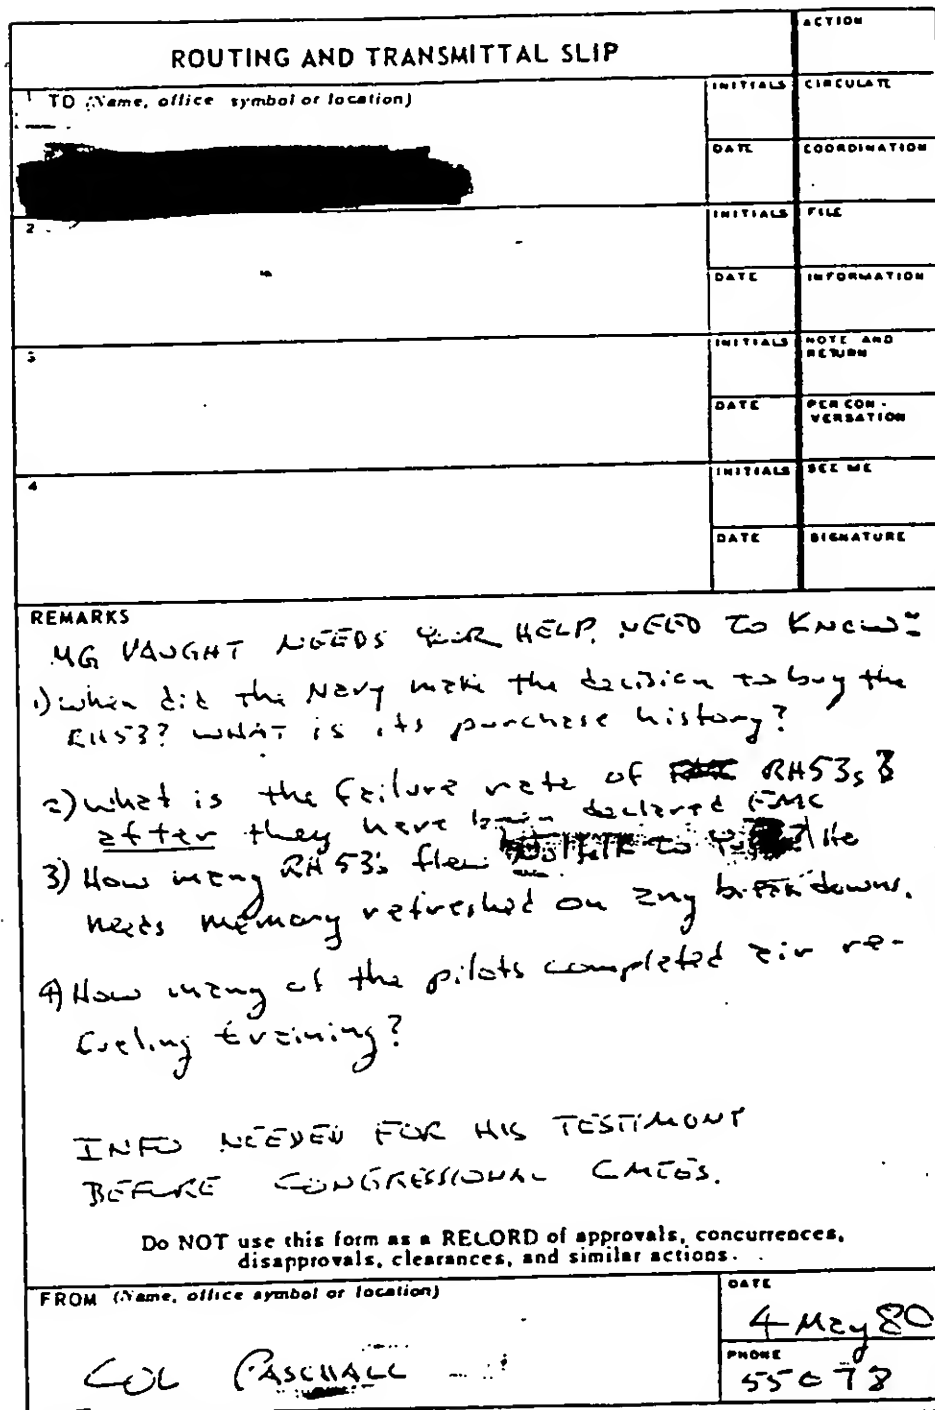 ROUTING AND TRANSMITTAL SLIP
ACTION
1 TO (Name, office symbol or location)
INITIALS
CIRCULATE
DATE
COORDINATION
2
INITIALS
FILE
DATE
INFORMATION
3
INITIALS
NOTE AND
RETURN
DATE
PER CON-
VERSATION
4
INITIALS
SEE ME
DATE
SIGNATURE
REMARKS
MG VAUGHT NEEDS YOUR HELP. NEED TO KNOW:
1) when did the Navy make the decision to buy the
RH53? WHAT is its purchase history?
2) what is the failure rate of RH53s
after they have been declared FMC
3) How many RH53's flew to He
needs memory refreshed on any breakdowns.
4) How many of the pilots completed air re-
fueling training?
INFO NEEDED FOR HIS TESTIMONY
BEFORE CONGRESSIONAL CMTES.
Do NOT use this form as a RECORD of approvals, concurrences,
disapprovals, clearances, and similar actions.
FROM (Name, office symbol or location)
COL PASCHALL
DATE
4 May 80
PHONE
55078